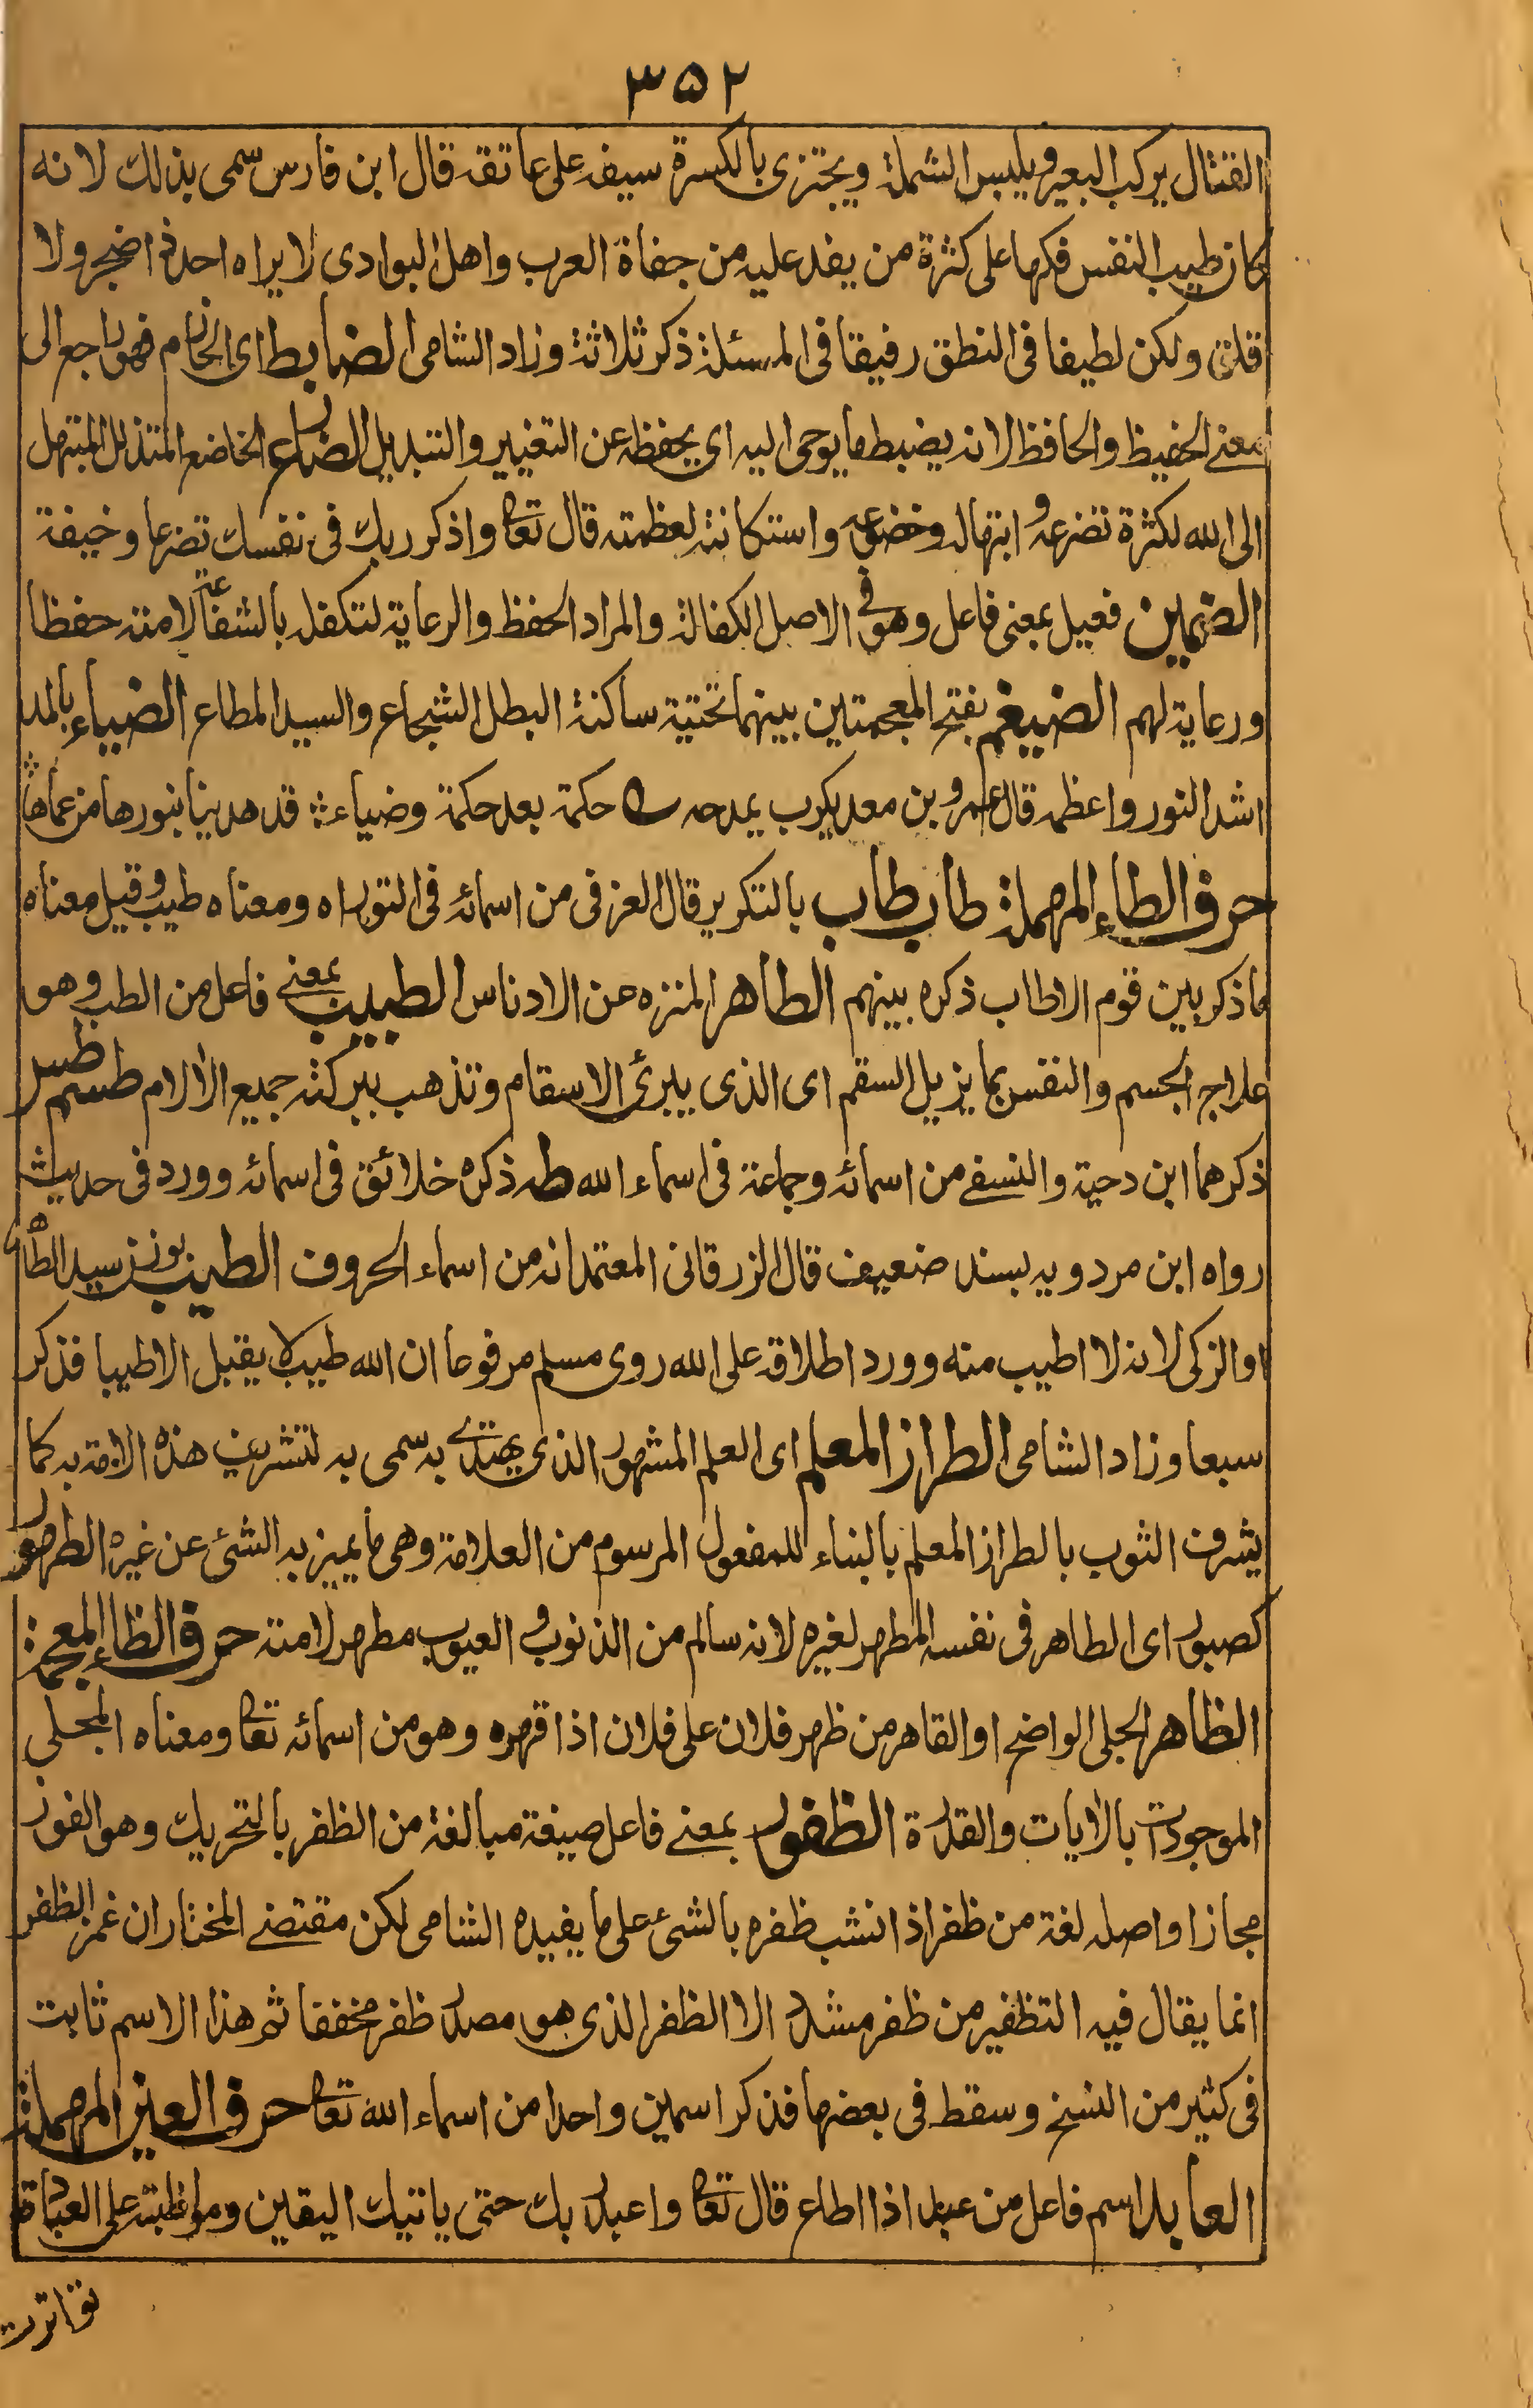 ٣٥٢
القتال يركب البعير ويلبس الشملة ويجتزى بالكسرة سيفه على عاتقه قال ابن فارس سمى بذلك لانه
كان طيب النفس فكها على كثرة من يفد عليه من جفاة العرب واهل البوادى لا يراه احد ذا ضجر ولا
قلق ولكن لطيفا فى النطق رفيقا فى المسئلة ذكر ثلاثة وزاد الشامى الضابط اى الحازم فهو راجع الى
معنى الحفيظ والحافظ لانه يضبط ما يوحى اليه اى يحفظه عن التغيير والتبديل الضارع الخاضع المتذلل المبتهل
الى الله لكثرة تضرعه وابتهاله وخضوعه واستكانته لعظمته قال تعا واذكر ربك فى نفسك تضرعا وخيفة
الضمين فعيل بمعنى فاعل وهو فى الاصل الكفالة والمراد الحفظ والرعاية لتكفله بالشفاعة لامته حفظا
ورعاية لهم الضيغم بفتح المعجمتين بينهما تحتية ساكنة البطل الشجاع والسيد المطاع الضياء بالمد
اشد النور واعظمه قال عمرو بن معديكرب يمدحه حكمة بعد حكمة وضياء قد هدينا بنورها من عماها
حرف الطاء المهملة طاب طاب بالتكرير قال العزفى من اسمائه فى التوراه ومعناه طيب وقيل معناه
ما ذكر بين قوم الا طاب ذكره بينهم الطاهر المنزه عن الادناس الطبيب بمعنى فاعل من الطب وهو
علاج الجسم والنفس بما يزيل السقم اى الذى يبرئ الاسقام وتذهب ببركته جميع الالام طسم طس
ذكرهما ابن دحية والنسفى من اسمائه وجماعة فى اسماء الله طه ذكره خلائق فى اسمائه وورد فى حديث
رواه ابن مردويه بسند ضعيف قال الزرقانى المعتمد انه من اسماء الحروف الطيب بوزن سيد الطاهر
او الزكى لانه لا اطيب منه وورد اطلاقه على الله روى مسلم مرفوعا ان الله طيب لا يقبل الا طيبا فذكر
سبعا وزاد الشامى الطراز المعلم اى العلم المشهور الذى يهتدى به سمى به لتشريف هذه الامة به كما
يشرف الثوب بالطراز المعلم بالبناء للمفعول المرسوم من العلامة وهى ما يميز به الشئ عن غيره الطهور
كصبور اى الطاهر فى نفسه المطهر لغيره لانه سالم من الذنوب والعيوب مطهر لامته حرف الظاء المعجمة
الظاهر الجلى الواضح او القاهر من ظهر فلان على فلان اذا قهره وهو من اسمائه تعا ومعناه المجلى
الموجودات بالايات والقدرة الظفور بمعنى فاعل صيغة مبالغة من الظفر بالتحريك وهو الفوز
مجازا واصله لغة من ظفر اذا نشب ظفره بالشئ على ما يفيده الشامى لكن مقتضى المختار ان غمز الظفر
انما يقال فيه التظفير من ظفر مشدد الا الظفر الذى هو مصدر ظفر مخففا ثم هذا الاسم ثابت
فى كثير من النسخ وسقط فى بعضها فذكر اسمين واحدا من اسماء الله تعا حرف العين المهملة
العابد اسم فاعل من عبد اذا اطاع قال تعا واعبد ربك حتى ياتيك اليقين ومواظبته على العبادة
تواترت